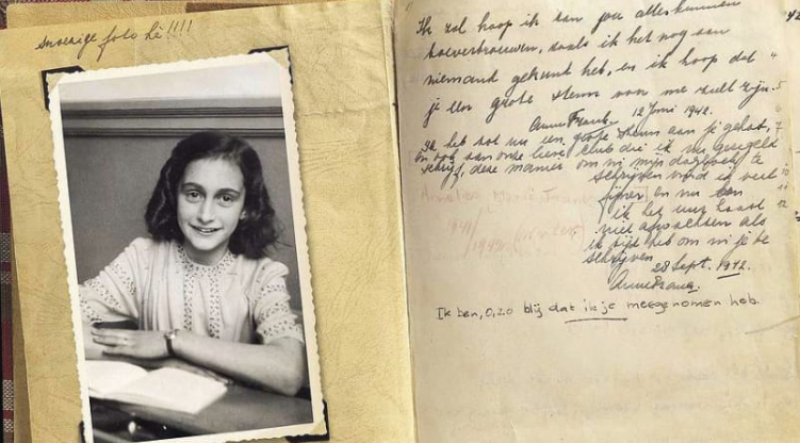 snoezige foto hè!!!!
Ik zal hoop ik aan jou alles kunnen
toevertrouwen, zoals ik het nog aan
niemand gekund heb, en ik hoop dat
je een grote steun voor me zult zijn.
Anne Frank. 12 Juni 1942.
Ik heb tot nu een grote steun aan je gehad,
en ook aan onze lieve club die ik nu geregeld
schrijf, deze manier om in mijn dagboek te
schrijven vind ik veel
fijner en nu kan
ik het uur haast
niet afwachten als
ik tijd heb om in je te
schrijven
28 Sept. 1942.
Anne Frank.
Ik ben, O, zo blij dat ik je meegenomen heb.